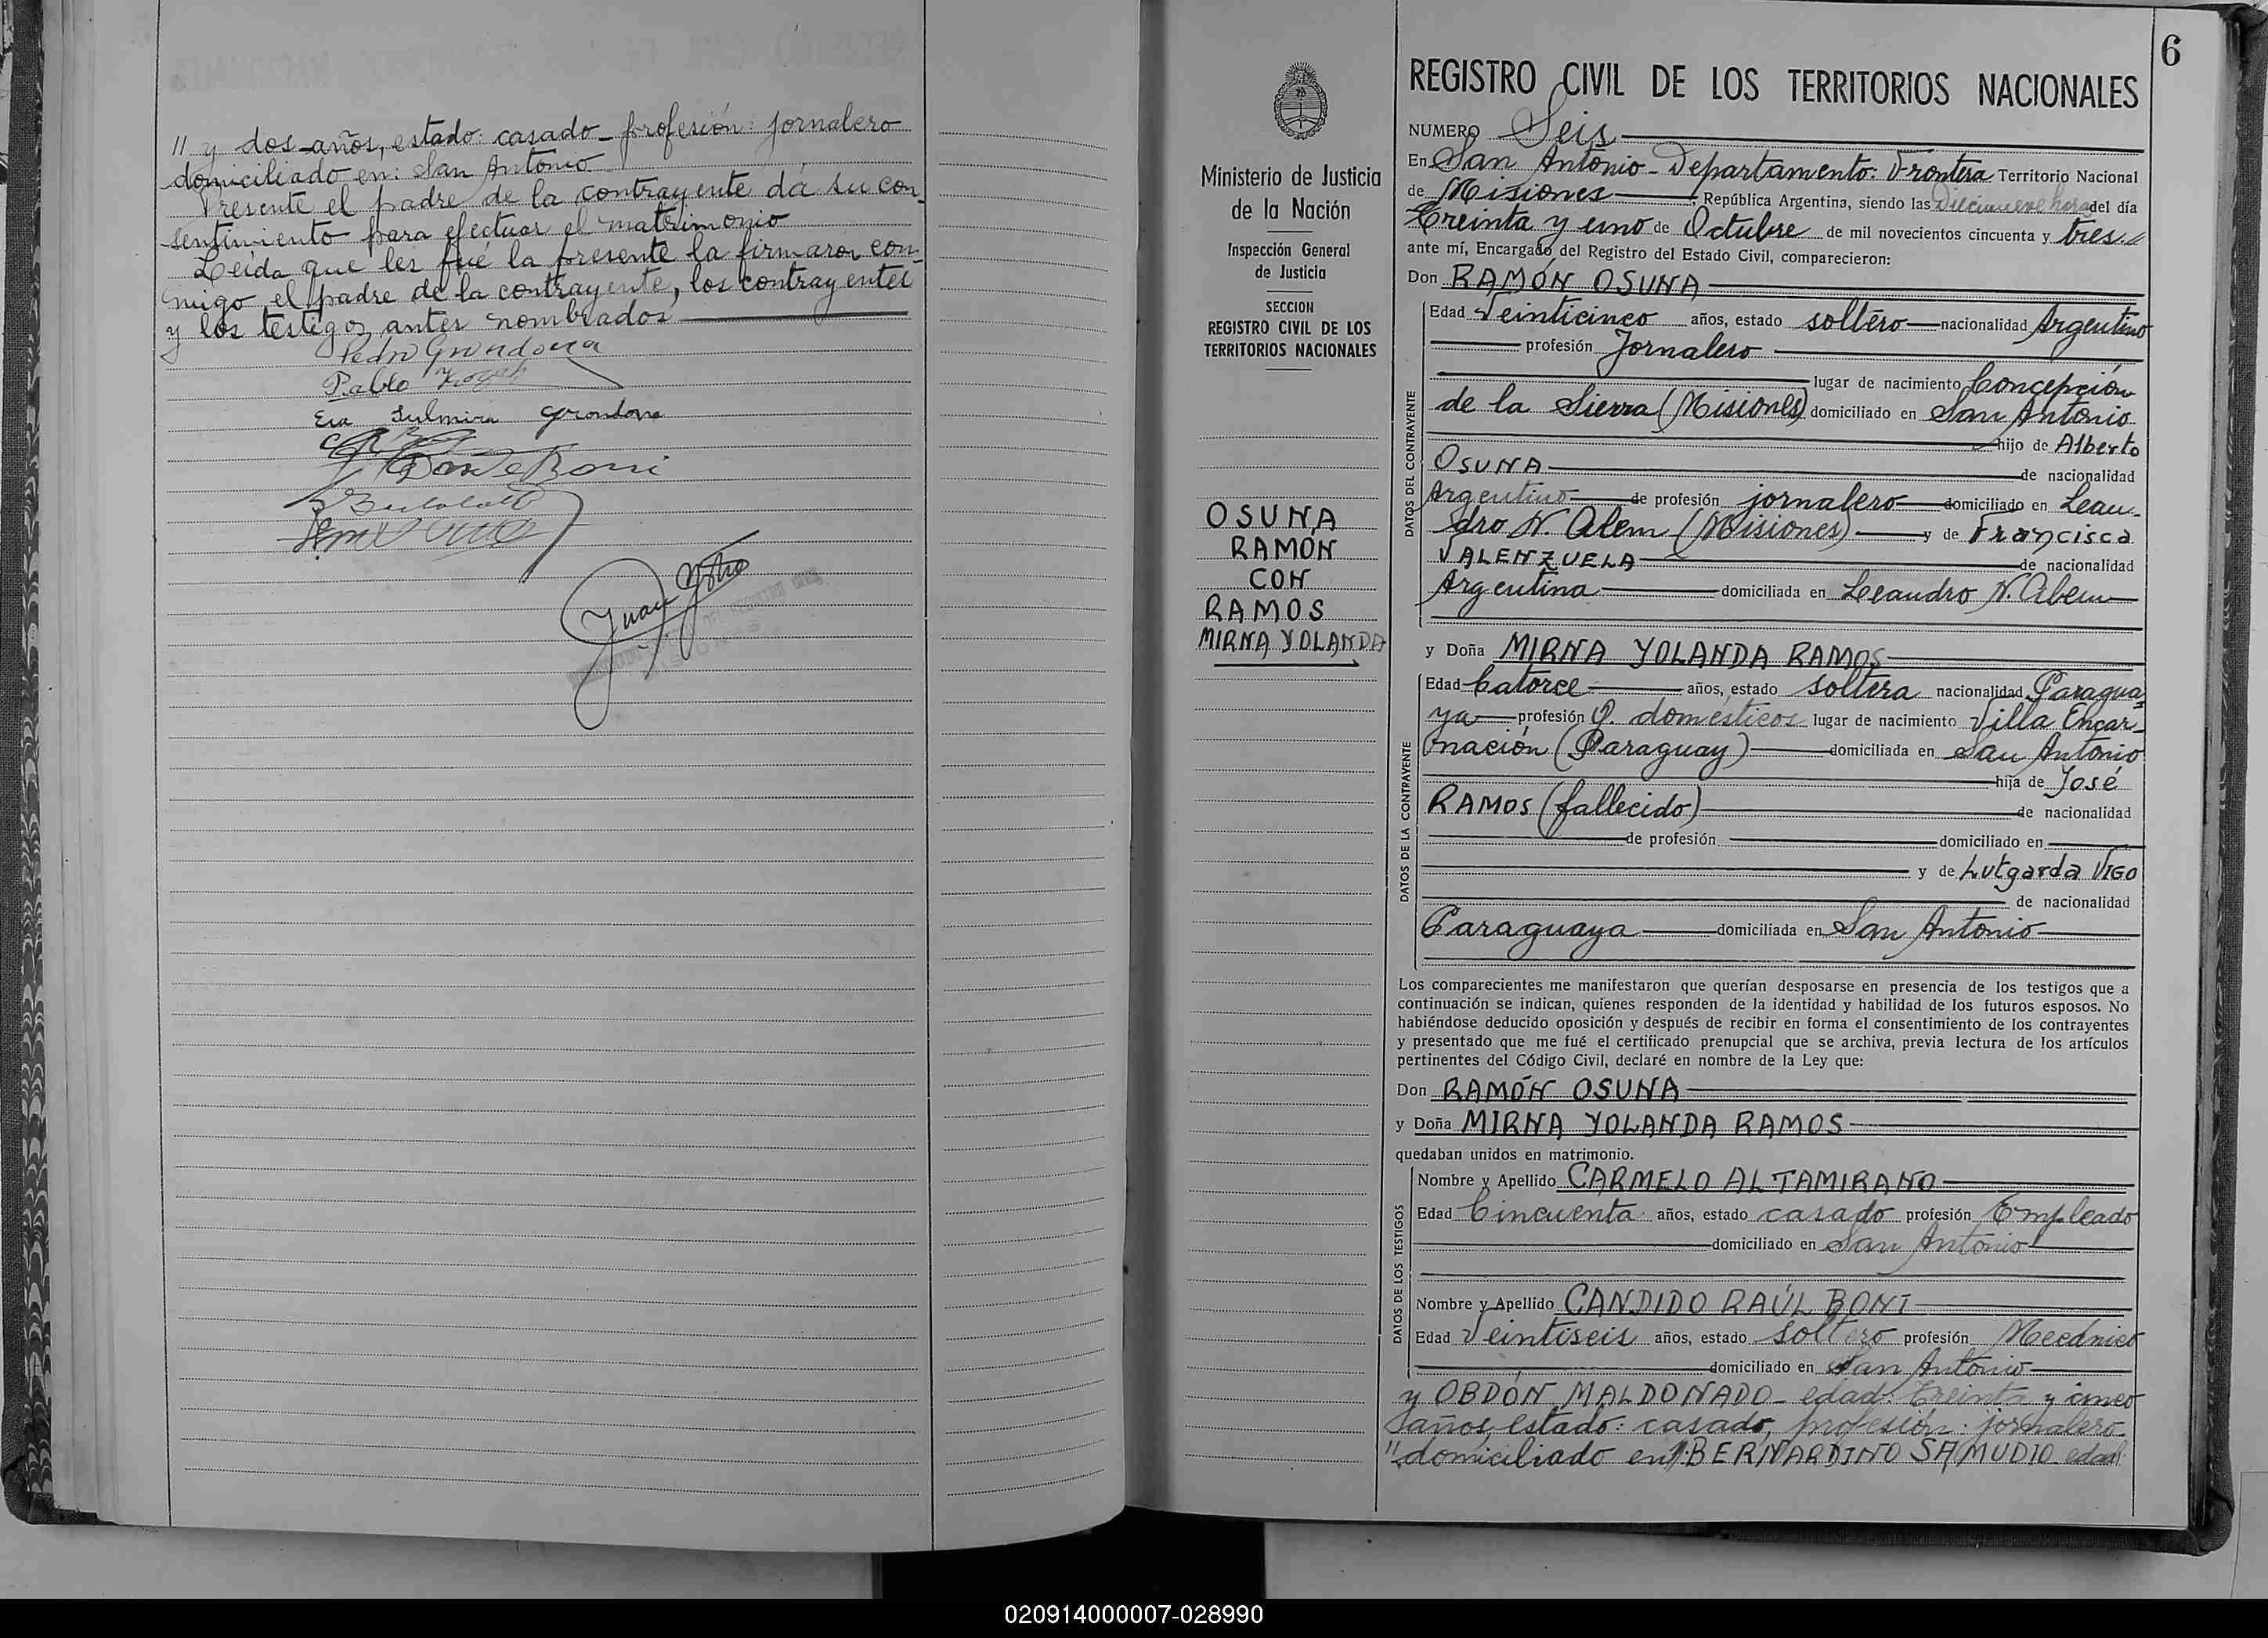 " y dos años, estado: casado - profesión: jornalero
domiciliado en: San Antonio
Presente el padre de la contrayente dá su con-
sentimiento para efectuar el matrimonio
Leída que les fué la presente la firmaron con-
migo, el padre de la contrayente, los contrayentes
y los testigos antes nombrados
Pedro Grondona
Pablo
Eva Sulmira Grondona
6
REGISTRO CIVIL DE LOS TERRITORIOS NACIONALES
Ministerio de Justicia
de la Nación
Inspección General
de Justicia
SECCION
REGISTRO CIVIL DE LOS
TERRITORIOS NACIONALES
OSUNA
RAMÓN
CON
RAMOS
MIRNA YOLANDA
NUMERO Seis
En San Antonio - Departamento: Frontera Territorio Nacional
de Misiones, República Argentina, siendo las Diecinueve horas del día
Treinta y uno de Octubre de mil novecientos cincuenta y tres
ante mí, Encargado del Registro del Estado Civil, comparecieron:
Don RAMÓN OSUNA
DATOS DEL CONTRAYENTE
Edad Veinticinco años, estado soltero nacionalidad Argentino
profesión Jornalero
lugar de nacimiento Concepción
de la Sierra (Misiones) domiciliado en San Antonio
hijo de Alberto
OSUNA de nacionalidad
Argentino de profesión jornalero domiciliado en Lean-
dro N. Alem (Misiones) y de Francisca
VALENZUELA de nacionalidad
Argentina domiciliada en Leandro N. Alem
y Doña MIRNA YOLANDA RAMOS
DATOS DE LA CONTRAYENTE
Edad Catorce años, estado soltera nacionalidad Paragua-
ya profesión Q. domésticos lugar de nacimiento Villa Encar-
nación (Paraguay) domiciliada en San Antonio
hija de José
RAMOS (fallecido) de nacionalidad
de profesión domiciliado en
y de Lutgarda VIGO
de nacionalidad
Paraguaya domiciliada en San Antonio
Los comparecientes me manifestaron que querían desposarse en presencia de los testigos que a
continuación se indican, quienes responden de la identidad y habilidad de los futuros esposos. No
habiéndose deducido oposición y después de recibir en forma el consentimiento de los contrayentes
y presentado que me fué el certificado prenupcial que se archiva, previa lectura de los artículos
pertinentes del Código Civil, declaré en nombre de la Ley que:
Don RAMÓN OSUNA
y Doña MIRNA YOLANDA RAMOS
quedaban unidos en matrimonio.
DATOS DE LOS TESTIGOS
Nombre y Apellido CARMELO ALTAMIRANO
Edad Cincuenta años, estado casado profesión Empleado
domiciliado en San Antonio
Nombre y Apellido CANDIDO RAÚL BONI
Edad Veintiseis años, estado soltero profesión Mecánico
domiciliado en San Antonio
y OBDÓN MALDONADO - edad: treinta y cinco
años, estado: casado, profesión: jornalero
" domiciliado en BERNARDINO SAMUDIO edad:
020914000007-028990